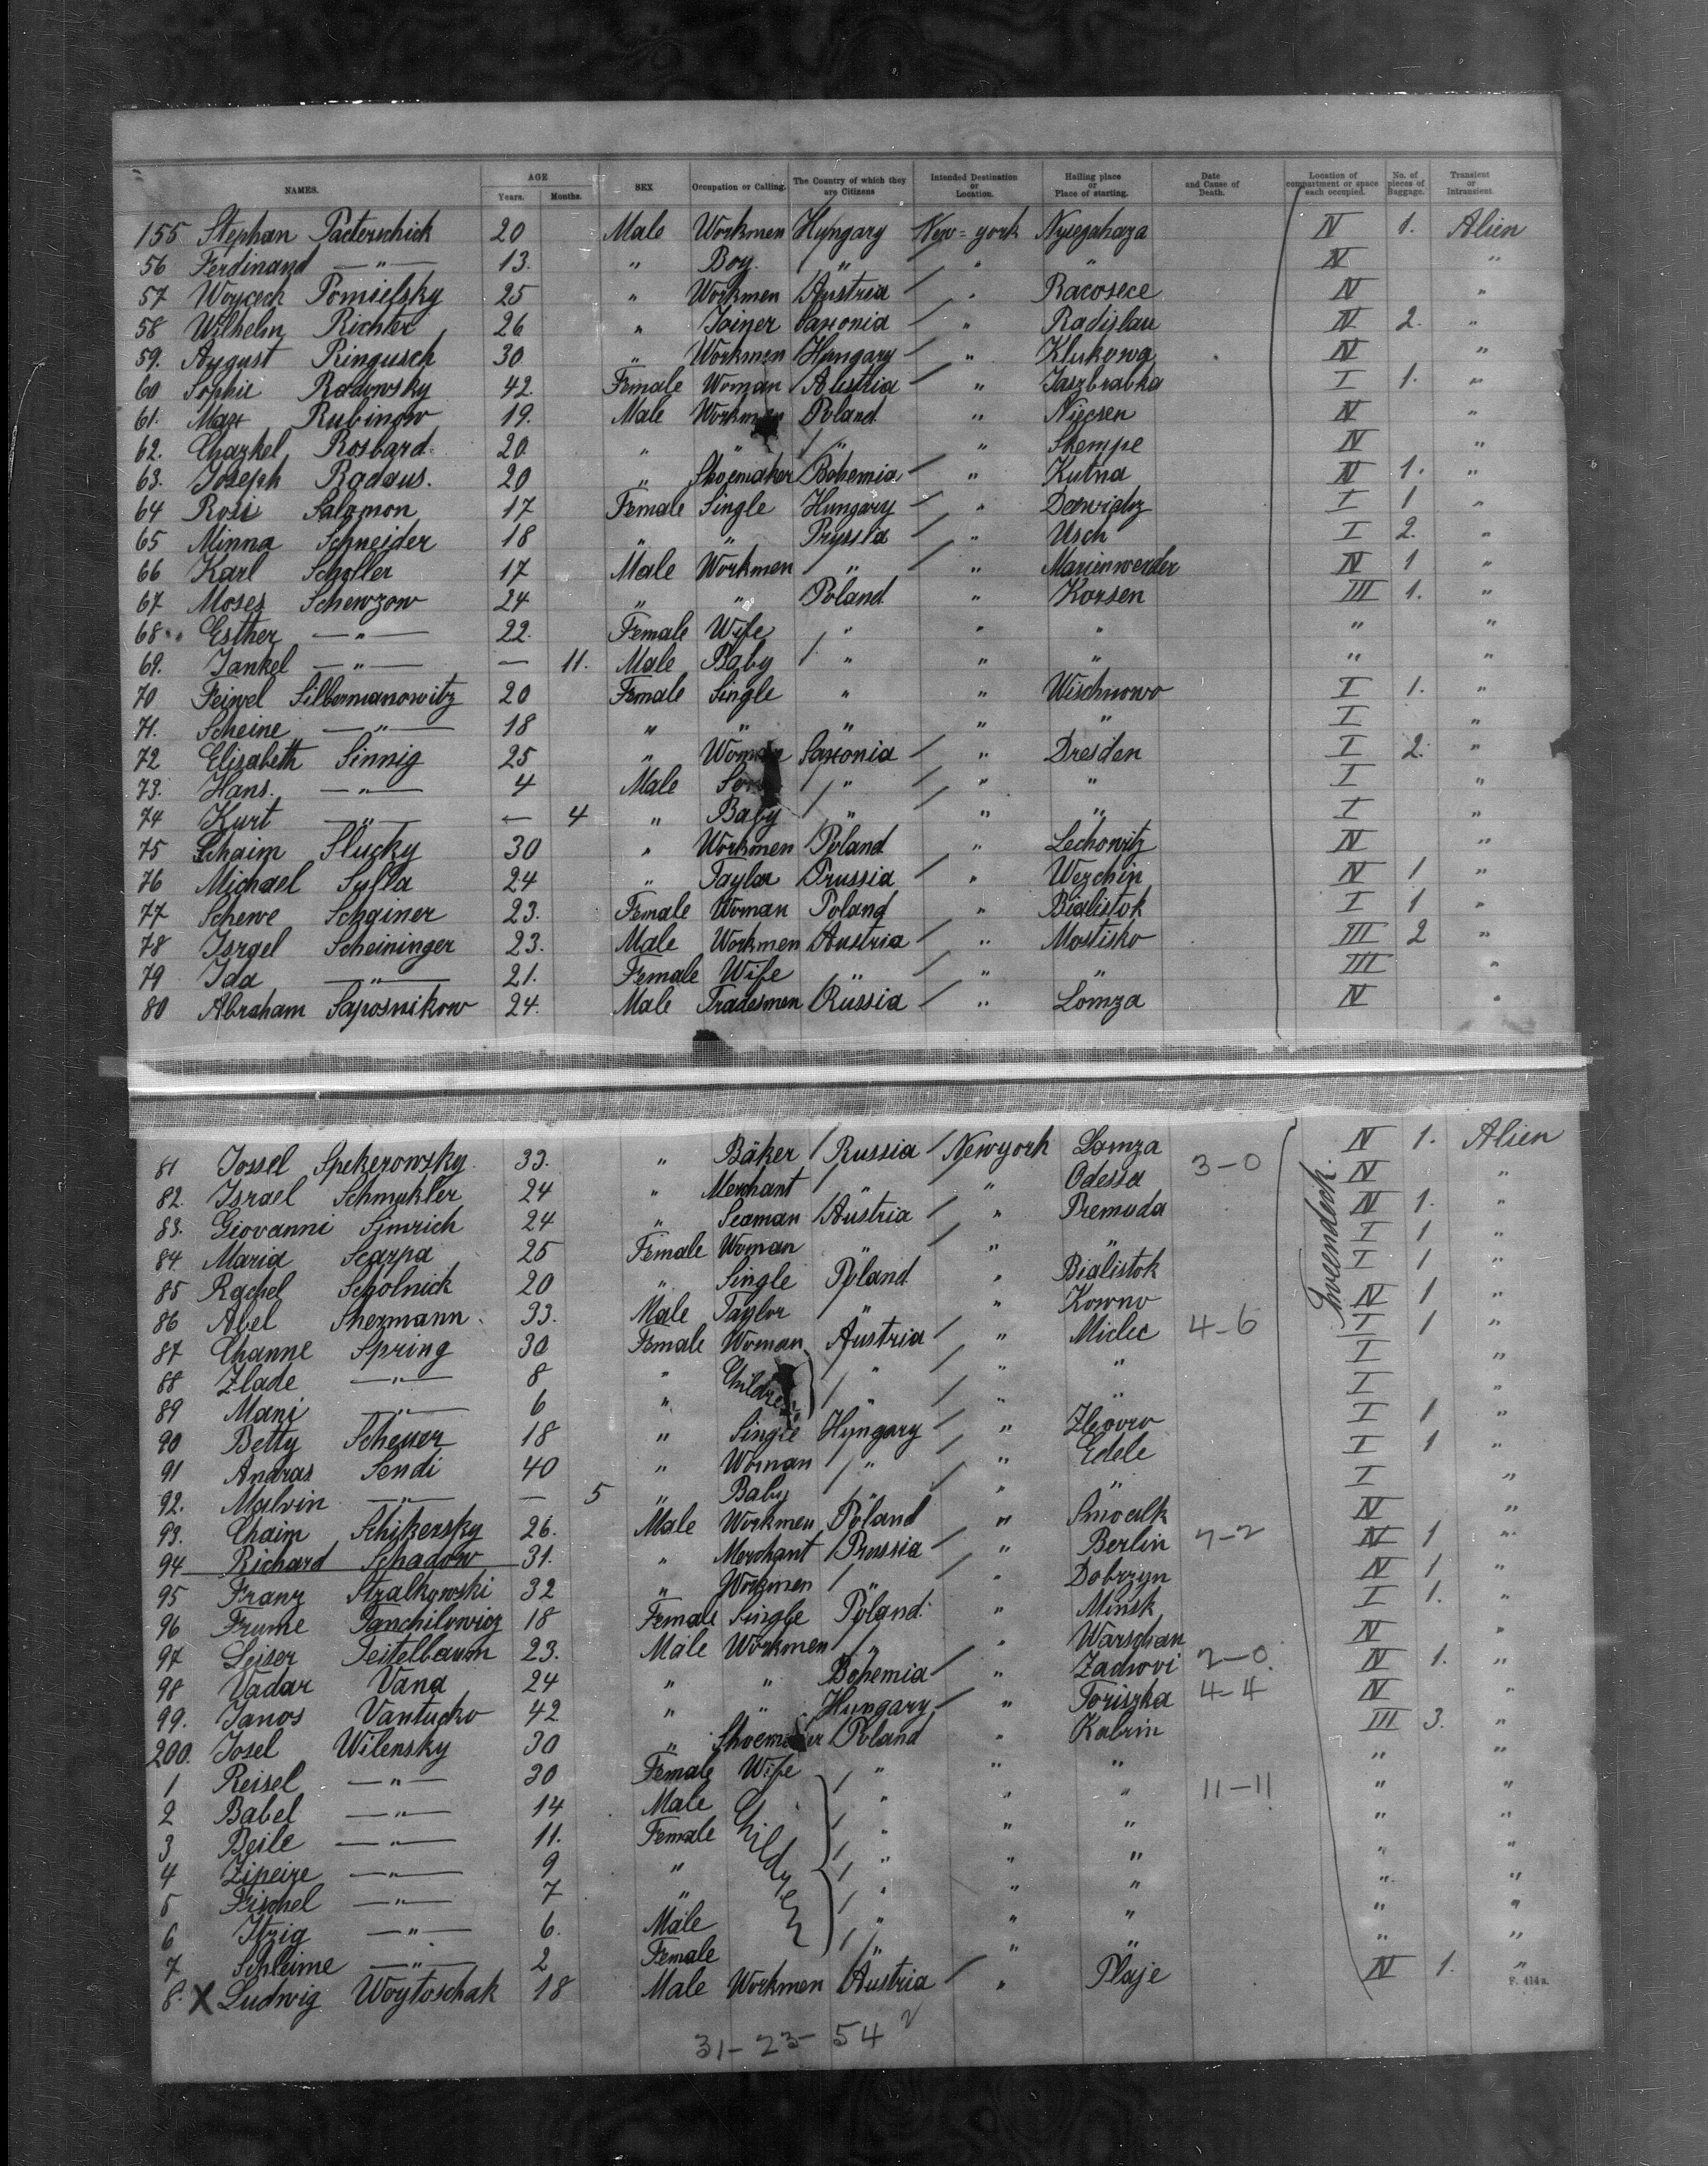 NAMES. AGE Years. Months. SEX Occupation or Calling. The Country of which they are Citizens Intended Destination or Location. Hailing place or Place of starting. Date and Cause of Death. Location of compartment or space each occupied. No. of pieces of Baggage. Transient or Intransient.
155 Stephan Pacterschick 20 Male Workmen Hungary New=york Nyiegahaza IV 1. Alien
56 Ferdinand —"— 13. " Boy. " " " IV "
57 Woyceck Pomielsky 25 " Workmen Austria " Racosece IV "
58 Wilhelm Richter 26 " Joiner Saxonia " Radislau IV 2. "
59. August Ringusch 30 " Workmen Hungary " Klukowa IV "
60 Sophie Radowsky 42. Female Woman Austria " Jaszbrabka I 1. "
61. Max Rubinow 19. Male Workmen Poland " Niecsen IV "
62. Chazkel Rosbard. 20 " " " " Skempe IV "
63. Joseph Radaus. 20 " Shoemaker Bohemia " Kutna IV 1. "
64 Rosi Salomon 17 Female Single Hungary " I 1 "
65 Minna Schneider 18 " " Pryssia " Usch I 2. "
66 Karl Scholler 17 Male Workmen " " Marienwerder IV 1 "
67 Moses Schewzow 24 " " Poland " Korsen III 1. "
68 Esther —"— 22. Female Wife " " " " "
69. Jankel —"— — 11. Male Baby " " " " "
70 Feiwel Silbermanowitz 20 Female Single " " Wischnowo I 1. "
71. Scheine —"— 18 " " " " " I "
72 Elisabeth Sinnig 25 " Woman Saxonia " Dresden I 2. "
73. Hans. —"— 4 Male Son " " " I "
74 Kurt —"— — 4 " Baby " " " I "
75 Schaim Slucky 30 " Workmen Poland " Lechowitz IV "
76 Michael Sylla 24 " Taylor Prussia " Wezchin IV 1 "
77 Schewe Schainer 23. Female Woman Poland " Bialistok I 1 "
78 Israel Scheininger 23. Male Workmen Austria " Mostisko III 2 "
79 Ida —"— 21. Female Wife " " " III "
80 Abraham Saposnikow 24. Male Tradesmen Russia " Lomza IV "
81 Jossel Spekerowzky. 33. " Bäker Russia Newyork Lomza IV 1. Alien
82. Israel Schmukler 24 " Merchant " " Odessa 3-0 IV "
83. Giovanni Simrich 24 " Seaman Austria " Premuda IV 1. "
84 Maria Scarpa 25 Female Woman " " I 1 "
85 Rachel Scholnick 20 " Single Poland " Bialistok I 1 "
86 Abel Shezmann. 33. Male Taylor " " Kowno IV 1 "
87 Channe Spring 30 Female Woman Austria " Mielec 4-6 I 1 "
88 Zlade —"— 8 " Children " " " I "
89 Mani —"— 6 " " " " I "
90 Betty Scheuer 18 " Single Hungary " Zboovo I 1 "
91 Andras Sendi 40 " Woman " " Edele I 1 "
92. Malvin —"— — 5 " Baby " " " I "
93. Chaim Schikersky 26. Male Workmen Poland " Suwalk IV "
94 Richard Schadow 31. " Merchant Prussia " Berlin 7-2 IV 1 "
95 Franz Stralkowski 32 " Workmen " " Dobrzyn IV 1 "
96 Frume Tanchilowicz 18 Female Single Poland. " Minsk I 1. "
97 Leiser Teitelbaum 23. Male Workmen " " Warschau IV "
98 Vadar Vana 24 " " Bohemia " Zadwovi 2-0 IV 1. "
99. Janos Vantucko 42 " " Hungary " Toriszka 4-4 IV "
200. Josel Wilensky 30 " Shoemaker Poland " Kabrin III 3. "
1 Reisel —"— 30 Female Wife " " " " "
2 Babel —"— 14 Male Children " " " 11-11 " "
3 Beile —"— 11. Female " " " " "
4 Zipeize —"— 9 " " " " " "
5 Fischel —"— 7 " " " " " "
6 Itzig —"— 6. Male " " " " "
7 Schleime —"— 2 Female " " " " "
8. X Ludwig Woytoschak 18 Male Workmen Austria " Plaje IV 1. "
Zwischendeck
F. 414a.
31-23-54